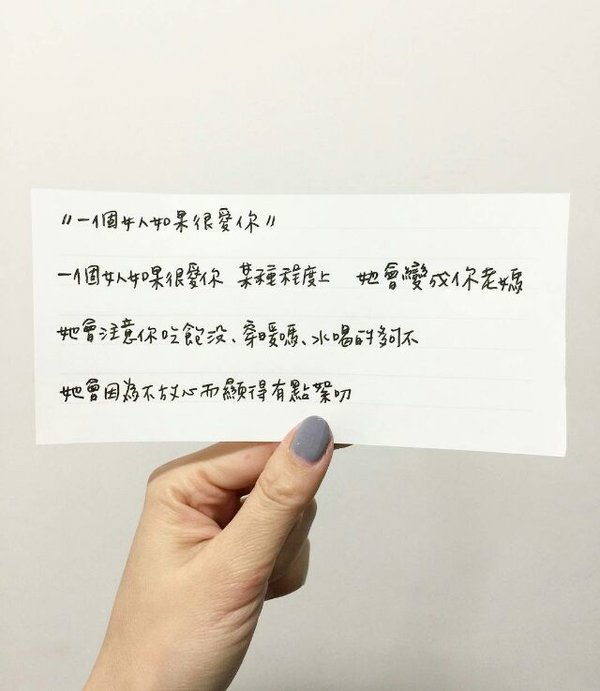 "一個女人如果很愛你"
一個女人如果很愛你 某種程度上 她會變成你老媽
她會注意你吃飽沒、穿暖嗎、水喝的夠不
她會因為不放心而顯得有點絮叨